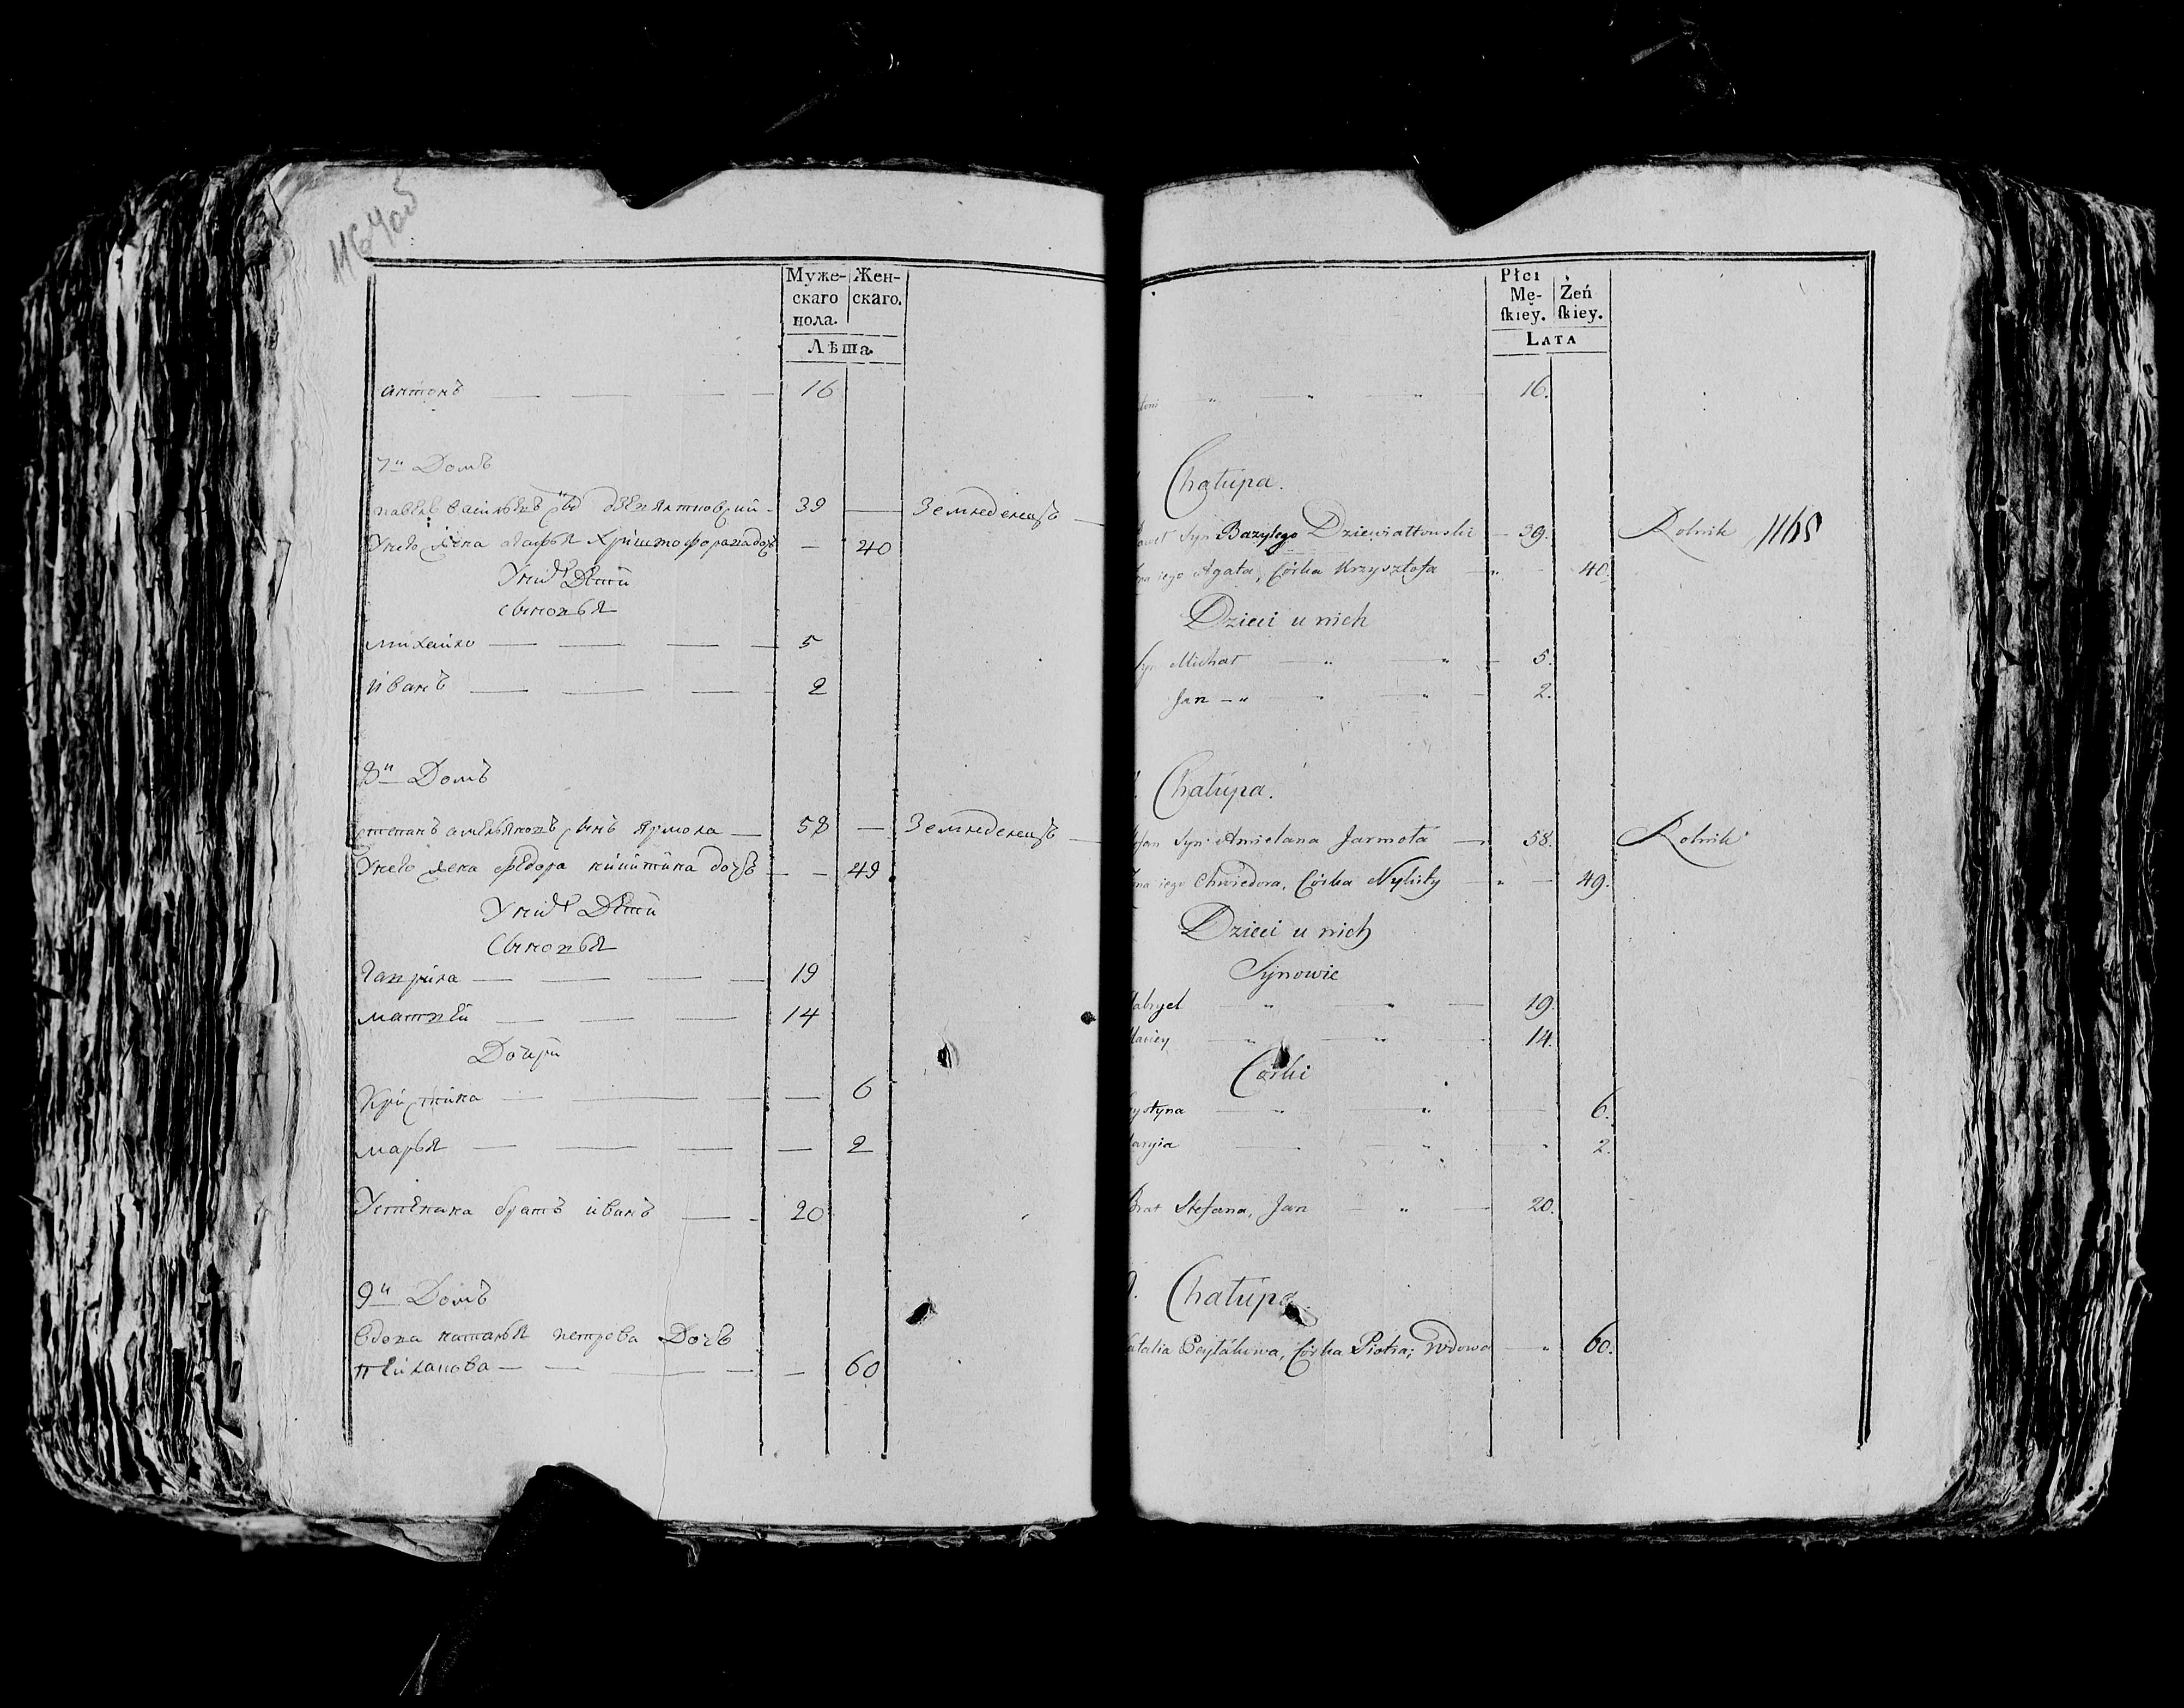 Муже- Жен-
скаго скаго.
пола.
Лѣта.
антонъ 16
7й Домъ
павелъ васильевъ сынъ дзевялтовский 39 Земледелецъ
У него жена агафья Криштофорова дочь 40
У них Дети
сыновья
михайло 5
иванъ 2
8й Домъ
степанъ амельяновъ сынъ ярмола 58 Земледелецъ
У него жена федора никитина дочь 49
У них Дети
Сыновья
гаврила 19
матвей 14
Дочери
Кристина 6
марья 2
У степана братъ иванъ 20
9й Домъ
вдова наталья петрова Дочь
60
Płci
Mę- Żeń
ſkiey. ſkiey.
Lata
toni 16.
Chałupa.
aweł Syn Bazylego Dziewiałtowski 39. Rolnik 1165
na iego Agata, Córka Krzysztofa 40.
Dzieci u nich
Syn Michał 5.
Jan 2.
Chałupa.
efan Syn Amielana Jarmoła 58. Rolnik
na iego Chwiedora, Córka Nykity 49.
Dzieci u nich
Synowie
abryel 19.
aciey 14.
Córki
ystyna 6.
aryia 2.
Brat Stefana, Jan 20.
9. Chałupa.
atalia Peytáhowa, Córka Piotra; Wdowa 60.